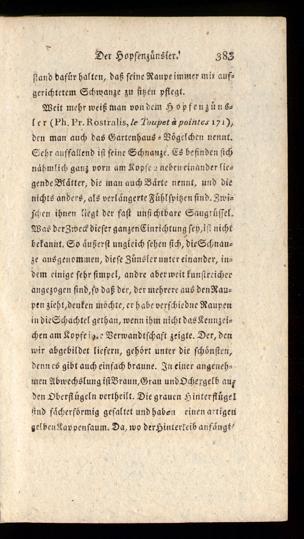 Der Hopfenzünsler. 383
stand dafür halten, daß seine Raupe immer mit auf-
gerichtetem Schwanze zu sitzen pflegt.
Weit mehr weiß man von dem Hopfenzüns-
ler (Ph. Pr. Rostralis, le Toupet à pointes 171),
den man auch das Gartenhaus-Vögelchen nennt.
Sehr auffallend ist seine Schnauze. Es befinden sich
nähmlich ganz vorn am Kopfe 2 neben einander lie-
gende Blätter, die man auch Bärte nennt, und die
nichts anders, als verlängerte Fühlspitzen sind. Zwi-
schen ihnen liegt der fast unsichtbare Saugrüssel.
Was der Zweck dieser ganzen Einrichtung sey, ist nicht
bekannt. So äußerst ungleich sehen sich, die Schnau-
ze ausgenommen, diese Zünsler unter einander, in-
dem einige sehr simpel, andre aber weit kunstreicher
angezogen sind, so daß der, der mehrere aus den Rau-
pen zieht, denken möchte, er habe verschiedne Raupen
in die Schachtel gethan, wenn ihm nicht das Kennzei-
chen am Kopfe Verwandtschaft zeigte. Der, den
wir abgebildet liefern, gehört unter die schönsten,
denn es gibt auch einfach braune. In einer angeneh-
men Abwechslung ist Braun, Grau und Ochergelb auf
den Oberflügeln vertheilt. Die grauen Hinterflügel
sind fächerförmig gestaltet und haben einen artigen
gelben Kappensaum. Da, wo der Hinterleib anfängt,